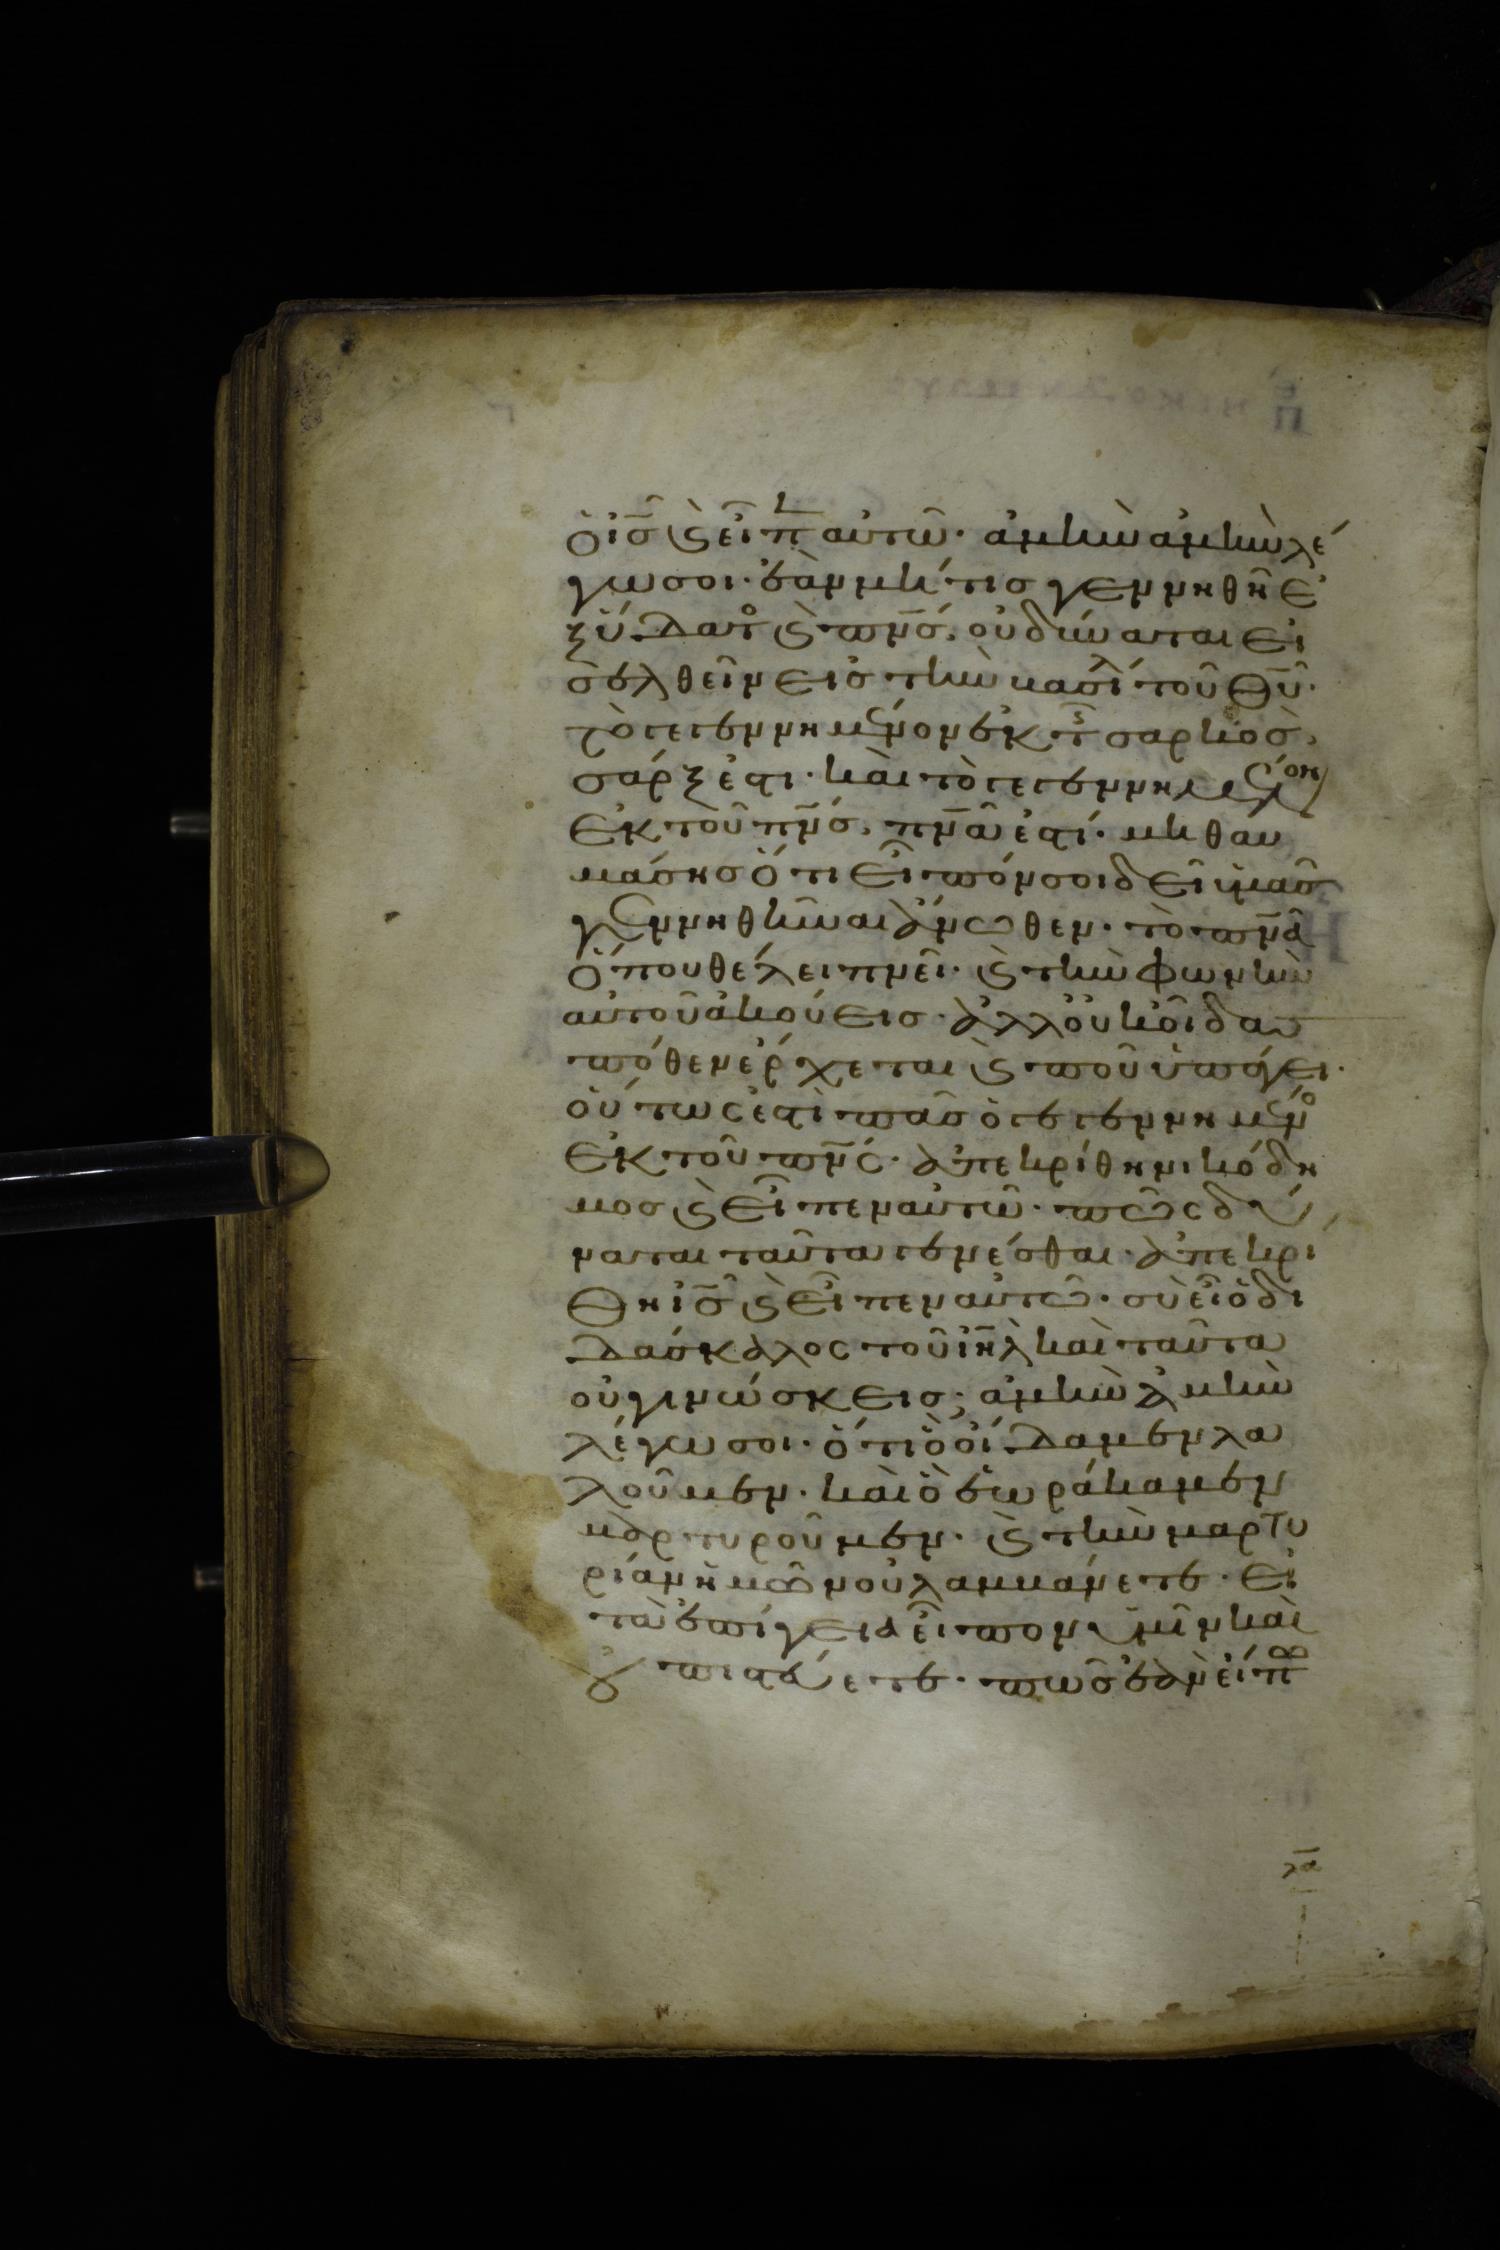 ὁ ις̅ ϗ εἶπ αὐτῶ· ἀμὴν ἀμὴν λέ
γω σοι· ἐὰν μή τις γεννηθῆ ἐ
ξ ὕδατο ϗ πν̅ς, οὐ δύναται εἰ
σελθεῖν εἰς τὴν βασιλ τοῦ θυ̅·
τὸ γεγεννημένον ἐκ τῆς σαρκὸς,
σάρξ ἐστι· καὶ τὸ γεγεννημένον
ἐκ τοῦ πν̅ς, πν̅α ἐστί· μὴ θαυ
μάσης ὅτι εἶπόν σοι δεῖ ὑμᾶς
γεννηθῆναι ἄνωθεν· τὸ πν̅α
ὅπου θέλει πνεῖ· ϗ τὴν φωνὴν
αὐτοῦ ἀκούεις· ἀλλ' οὐκ οἶδας
πόθεν ἔρχεται ϗ ποῦ ὑπάγει·
οὕτως ἐστὶ πᾶς ὁ γεγεννημένο
ἐκ τοῦ πν̅ς· ἀπεκρίθη νικόδη
μος ϗ εἶπεν αὐτῶ· πῶς δύ
ναται ταῦτα γενέσθαι· ἀπεκρί
θη ις̅ ϗ εἶπεν αὐτῶ· σὺ εἶ ὁ δι
δάσκαλος τοῦ ιη̅λ καὶ ταῦτα
οὐ γινώσκεις; ἀμὴν ἀμὴν
λέγω σοι· ὅτι ὃ οἴδαμεν λα
λοῦμεν· καὶ ὃ ἑωράκαμεν
μαρτυροῦμεν· ϗ τὴν μαρτυ
ρίαν ἡμῶν οὐ λαμβάνετε· εἰ
τὰ ἐπίγεια εἶπον ὑμῖν καὶ
οὐ πιστεύετε· πῶς ἐὰν εἴπω
λα̅